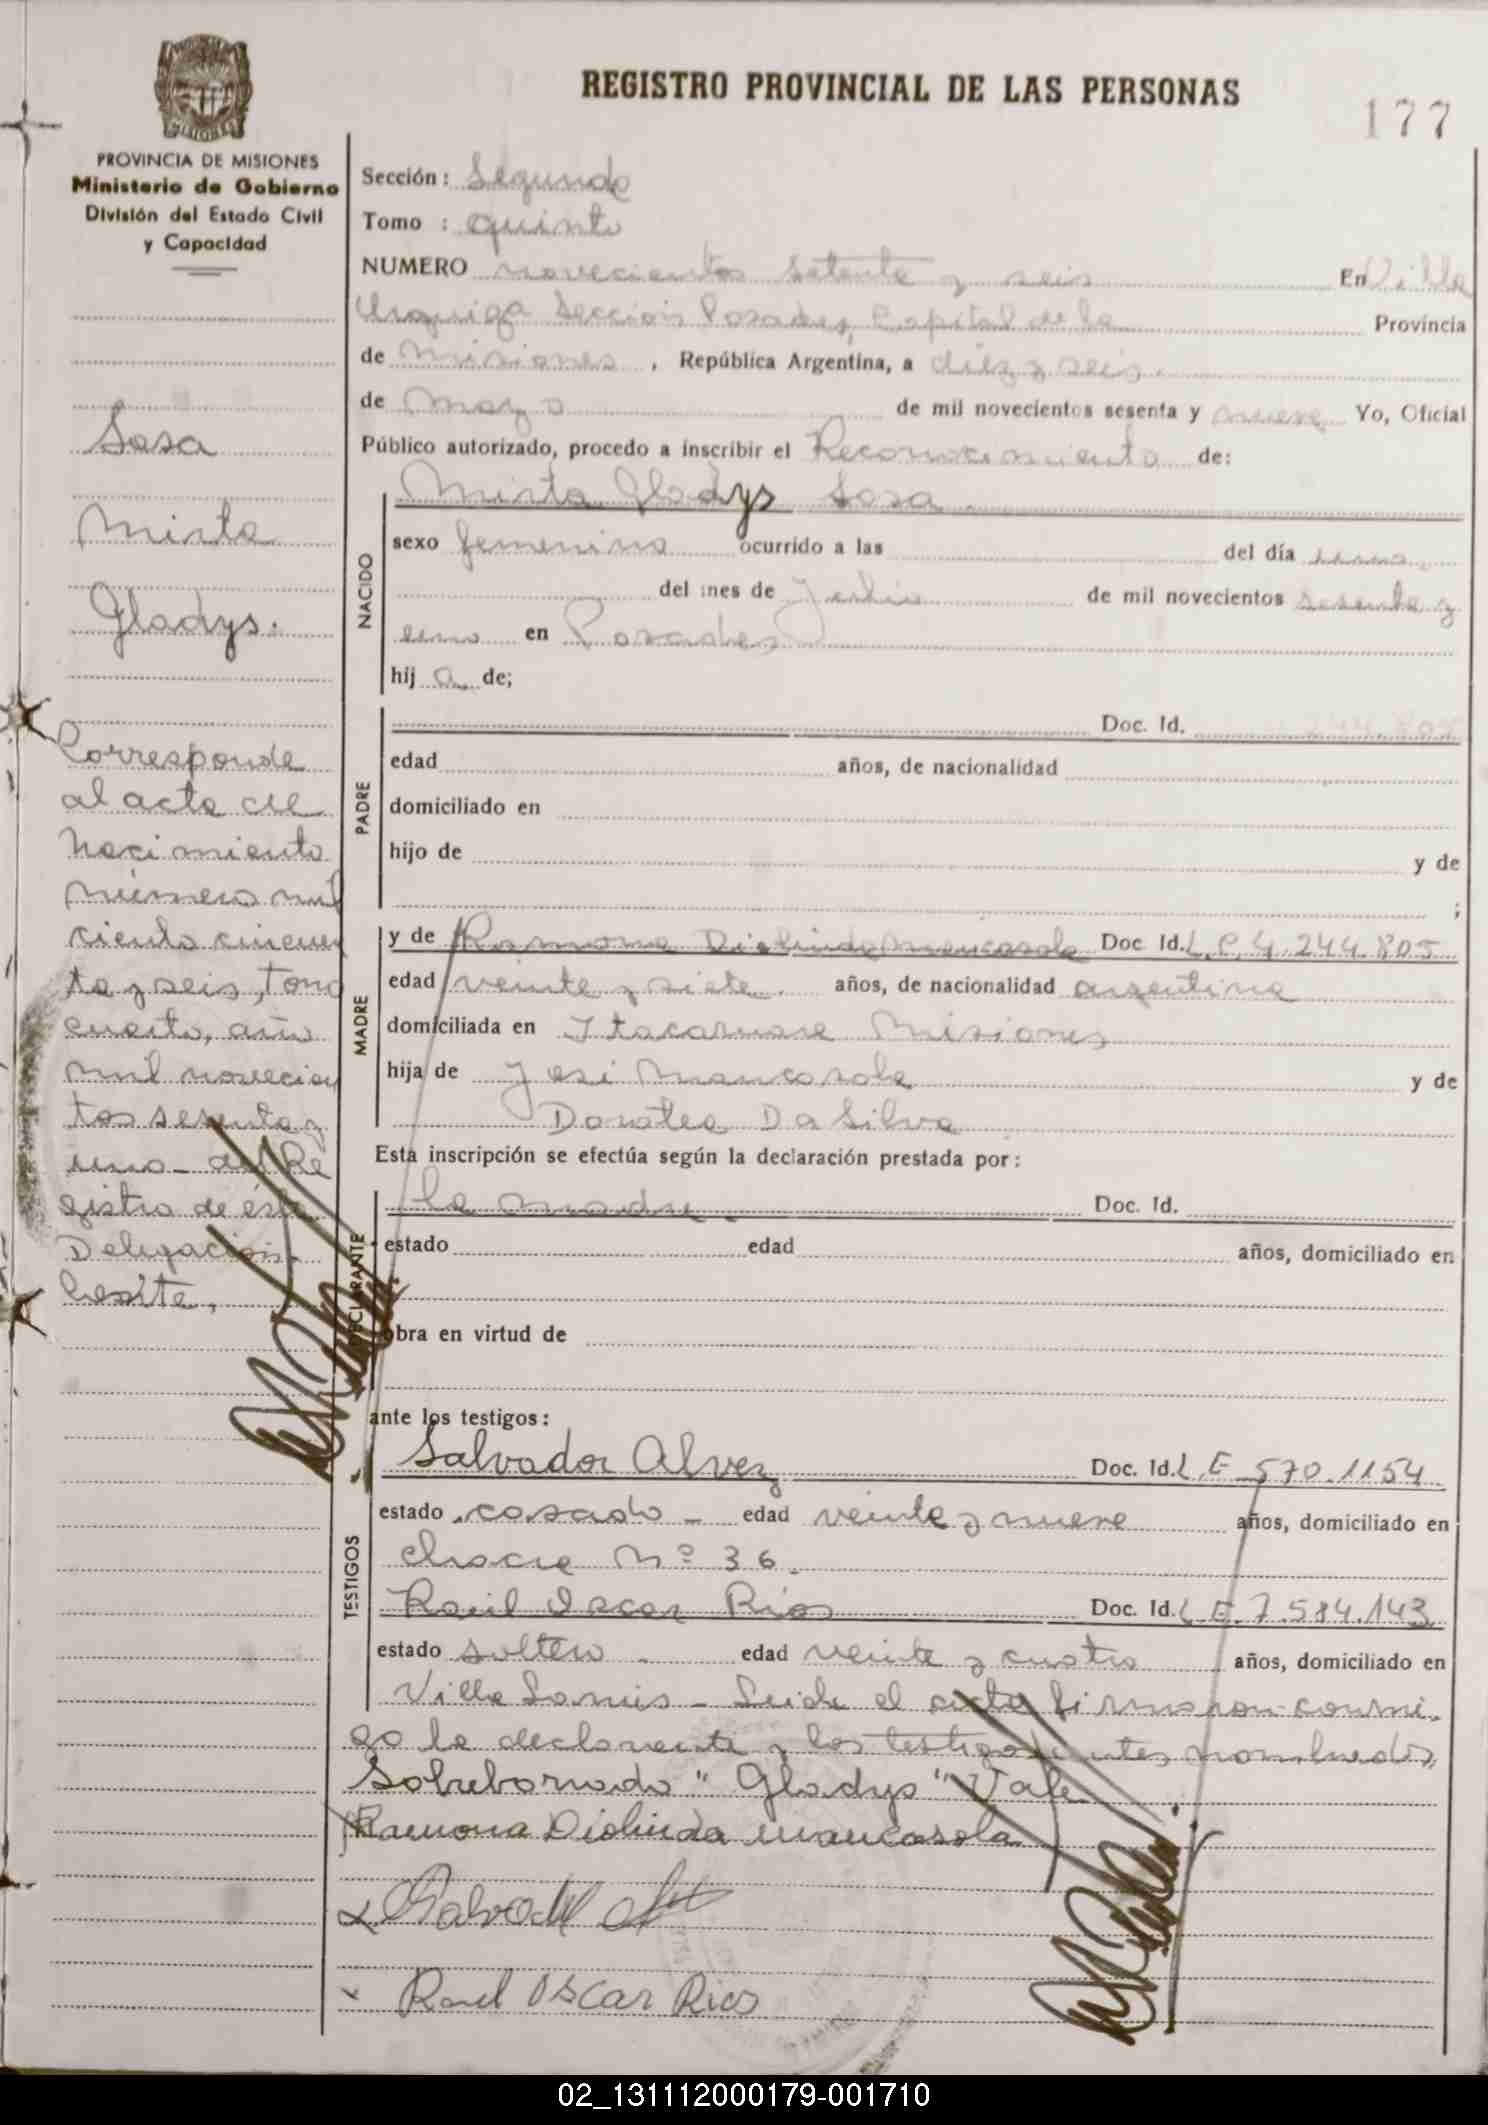 REGISTRO PROVINCIAL DE LAS PERSONAS
177
MISIONES
PROVINCIA DE MISIONES
Ministerio de Gobierno
División del Estado Civil
y Capacidad
Sosa
Mirta
Gladys.
Corresponde
al acta de
Nacimiento
número mil
ciento cincuen
ta y seis, tomo
cuarto, año
mil novecien
tos sesenta y
uno - del Re
gistro de ésta
Delegación.
Conste.
Sección: Segunda
Tomo : quinto
NUMERO novecientos setenta y seis En Villa
Urquiza Sección Posadas, Capital de la Provincia
de Misiones , República Argentina, a diez y seis.
de Mayo de mil novecientos sesenta y nueve Yo, Oficial
Público autorizado, procedo a inscribir el Reconocimiento de:
NACIDO
Mirta Gladys Sosa
sexo femenino ocurrido a las del día uno
del mes de Julio de mil novecientos sesenta y
uno en Posadas
hij a de;
PADRE
Doc. Id. 244.805
edad años, de nacionalidad
domiciliado en
hijo de y de
;
MADRE
y de Ramona Diolinda Mancasola Doc Id. L.C. 4.244.805
edad veinte y siete. años, de nacionalidad argentina
domiciliada en Itacaruare Misiones
hija de José Mancasola y de
Dorotea Da Silva
Esta inscripción se efectúa según la declaración prestada por:
DECLARANTE
la madre. Doc. Id.
estado edad años, domiciliado en
obra en virtud de
ante los testigos:
TESTIGOS
Salvador Alvez Doc. Id. L.E 570.1154
estado casado - edad veinte y nueve años, domiciliado en
chacra Nº 36.
Raúl Oscar Ríos Doc. Id. L.E. 7.584.143
estado soltero. edad veinte y cuatro años, domiciliado en
Villa Sarmis - Leida el acta firmaron conmi-
go la declarante y los testigos antes nombrados,
Sobreborrado "Gladys" Vale.
Ramona Diolinda mancasola
x Raul Oscar Rios
02_131112000179-001710